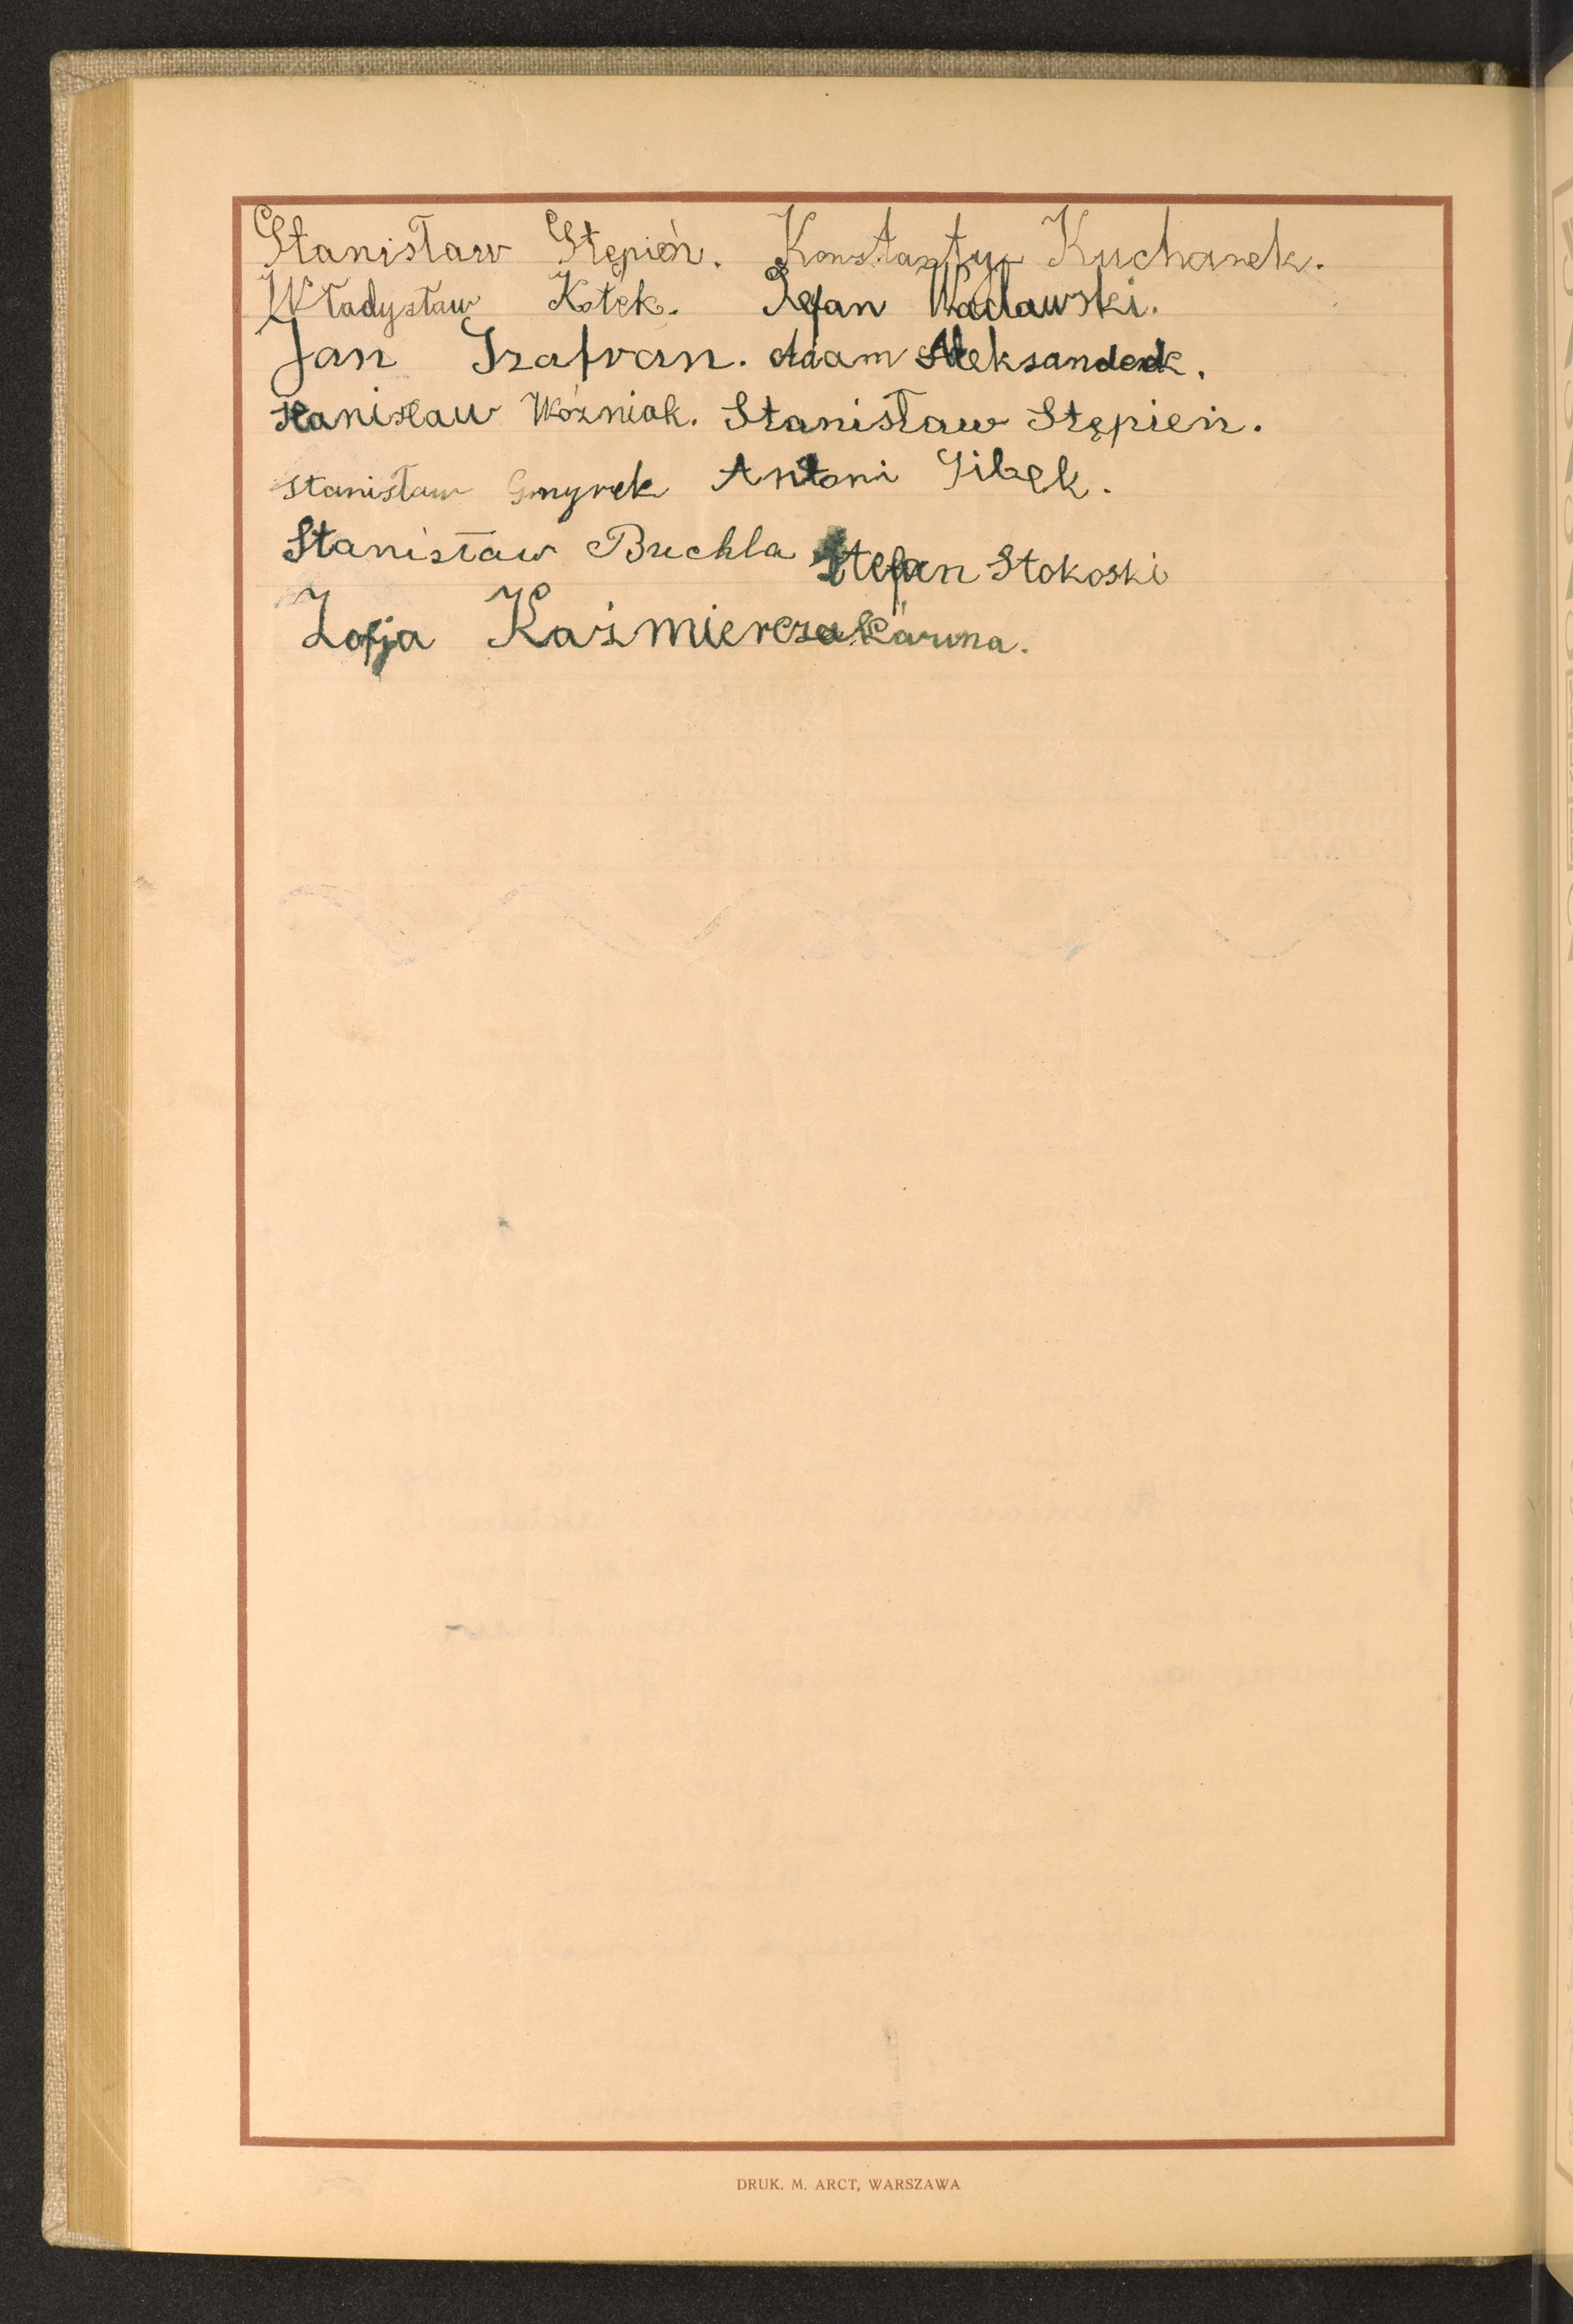 Stanisław Stępień. Konstanty Kucharek.
Władysław Kołek. Stefan Wacławski.
Jan Szafran. Adam Aleksanderk.
Stanisław Woźniak. Stanisław Stępień.
Stanisław Gmyrek Antoni Gibek.
Stanisław Buchla Stefan Stokoski
Zofja Kaźmierczakówna.
DRUK. M. ARCT, WARSZAWA